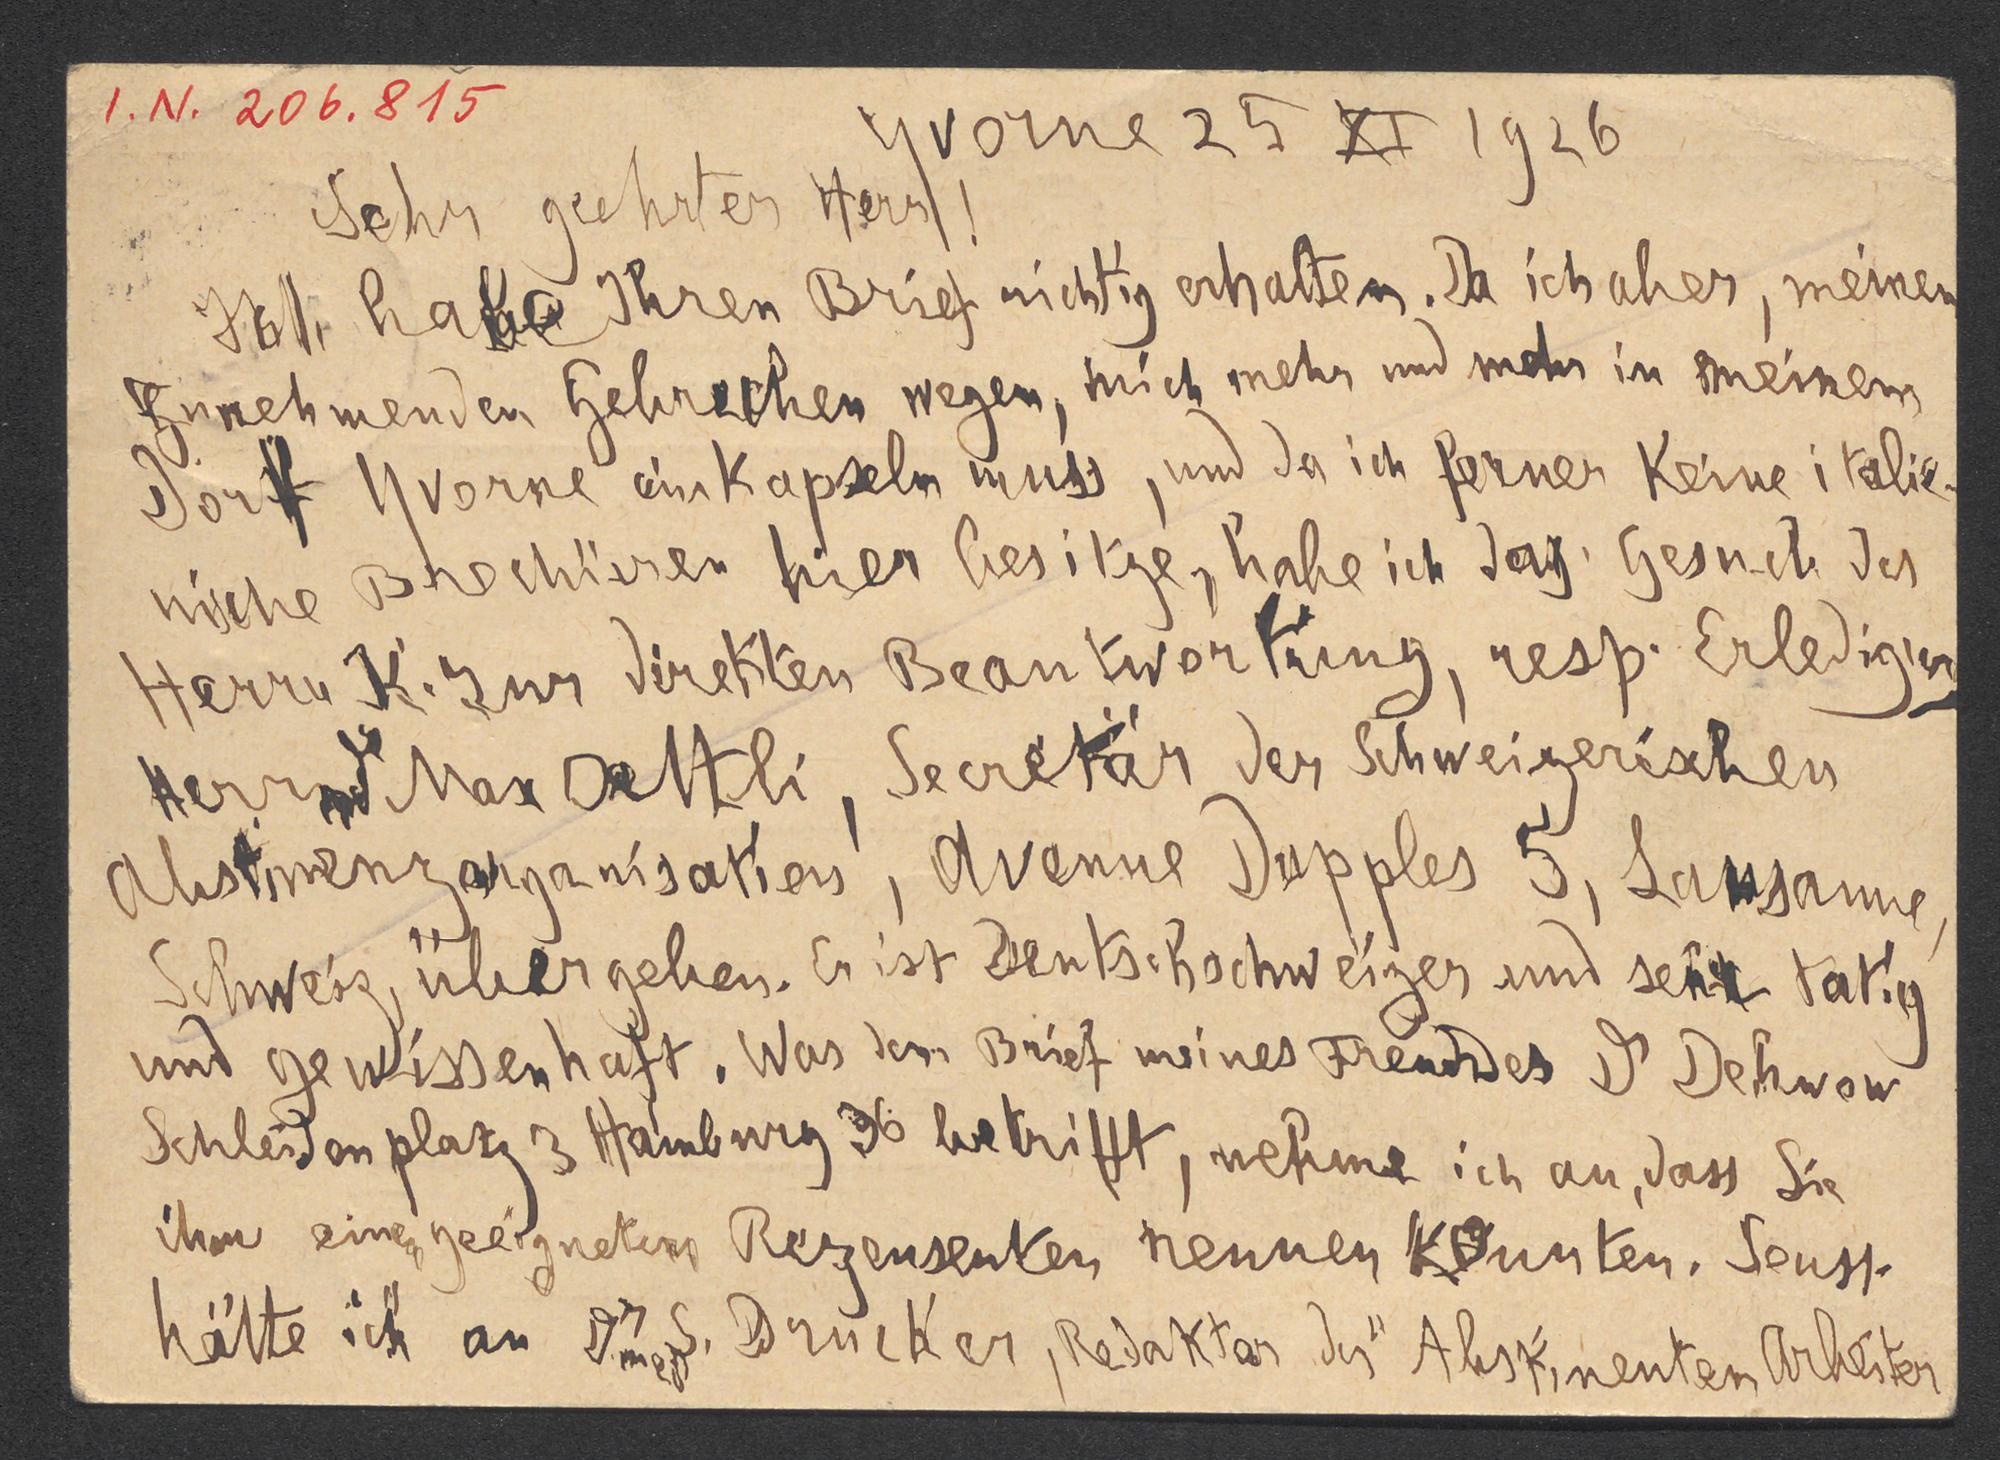 I.N. 206.815
Yvorne 25 XI 1926
Sehr geehrter Herr!
Ich habe Ihren Brief richtig erhalten. Da ich aber, meinen
zunehmenden Gebrechen wegen, mich mehr und mehr in meinem
Dorf Yvorne einkapseln muss, und da ich ferner keine italie-
nische Brochüren hier besitze, habe ich das Gesuch des
Herrn K. zur direkten Beantwortung, resp. Erledigung
Herrn Max Oettli, Secretär der Schweizerischen
Abstinenzorganisation, Avenue Dapples 5, Lausanne,
Schweiz, übergeben. Er ist Deutschschweizer und sehr tätig
und gewissenhaft. Was den Brief meines Freundes Dr Dehnow
Schleidenplatz 3 Hamburg 36 betrifft, nehme ich an, dass Sie
ihm einen geeigneten Rezensenten nennen könnten. Sonst
hätte ich an S. Drucker, Redaktor des "Abstinenten Arbeiter